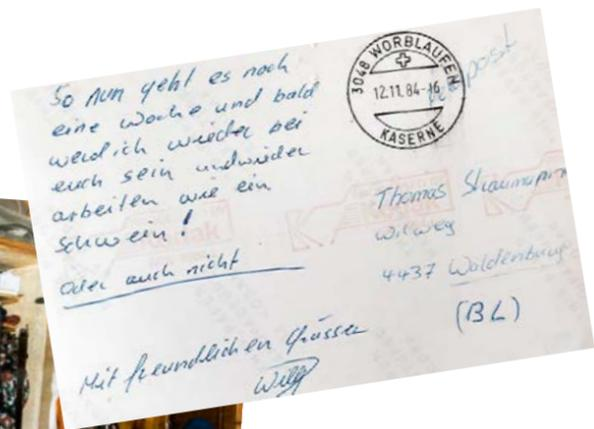 So nun geht es noch
eine Woche und bald
werd ich wieder bei
euch sein und wieder
arbeiten wie ein
Schwein!
oder auch nicht
Mit freundlichen Grüssen
Willy
3048 WORBLAUFEN
12.11.84-16
KASERNE
Thomas
Wilweg
4437 Waldenburg
(BL)
Kodak